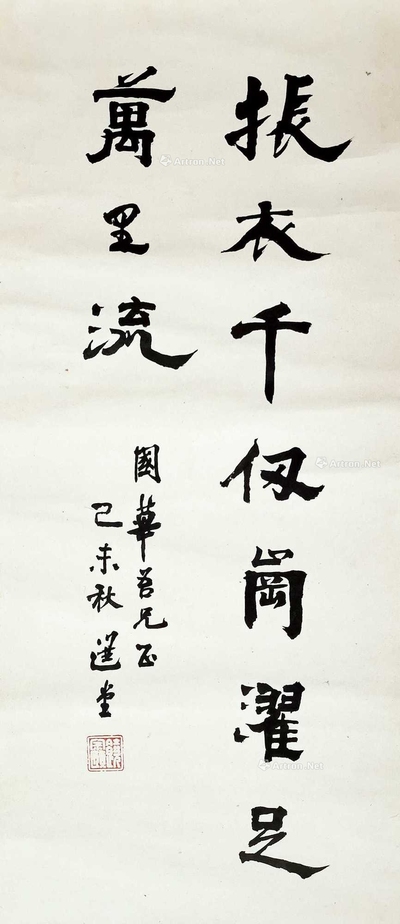 振衣千仭崗濯足
萬里流
國華吾兄正
己未秋選堂
Artron.Net
Artron.Net
Artron.Net